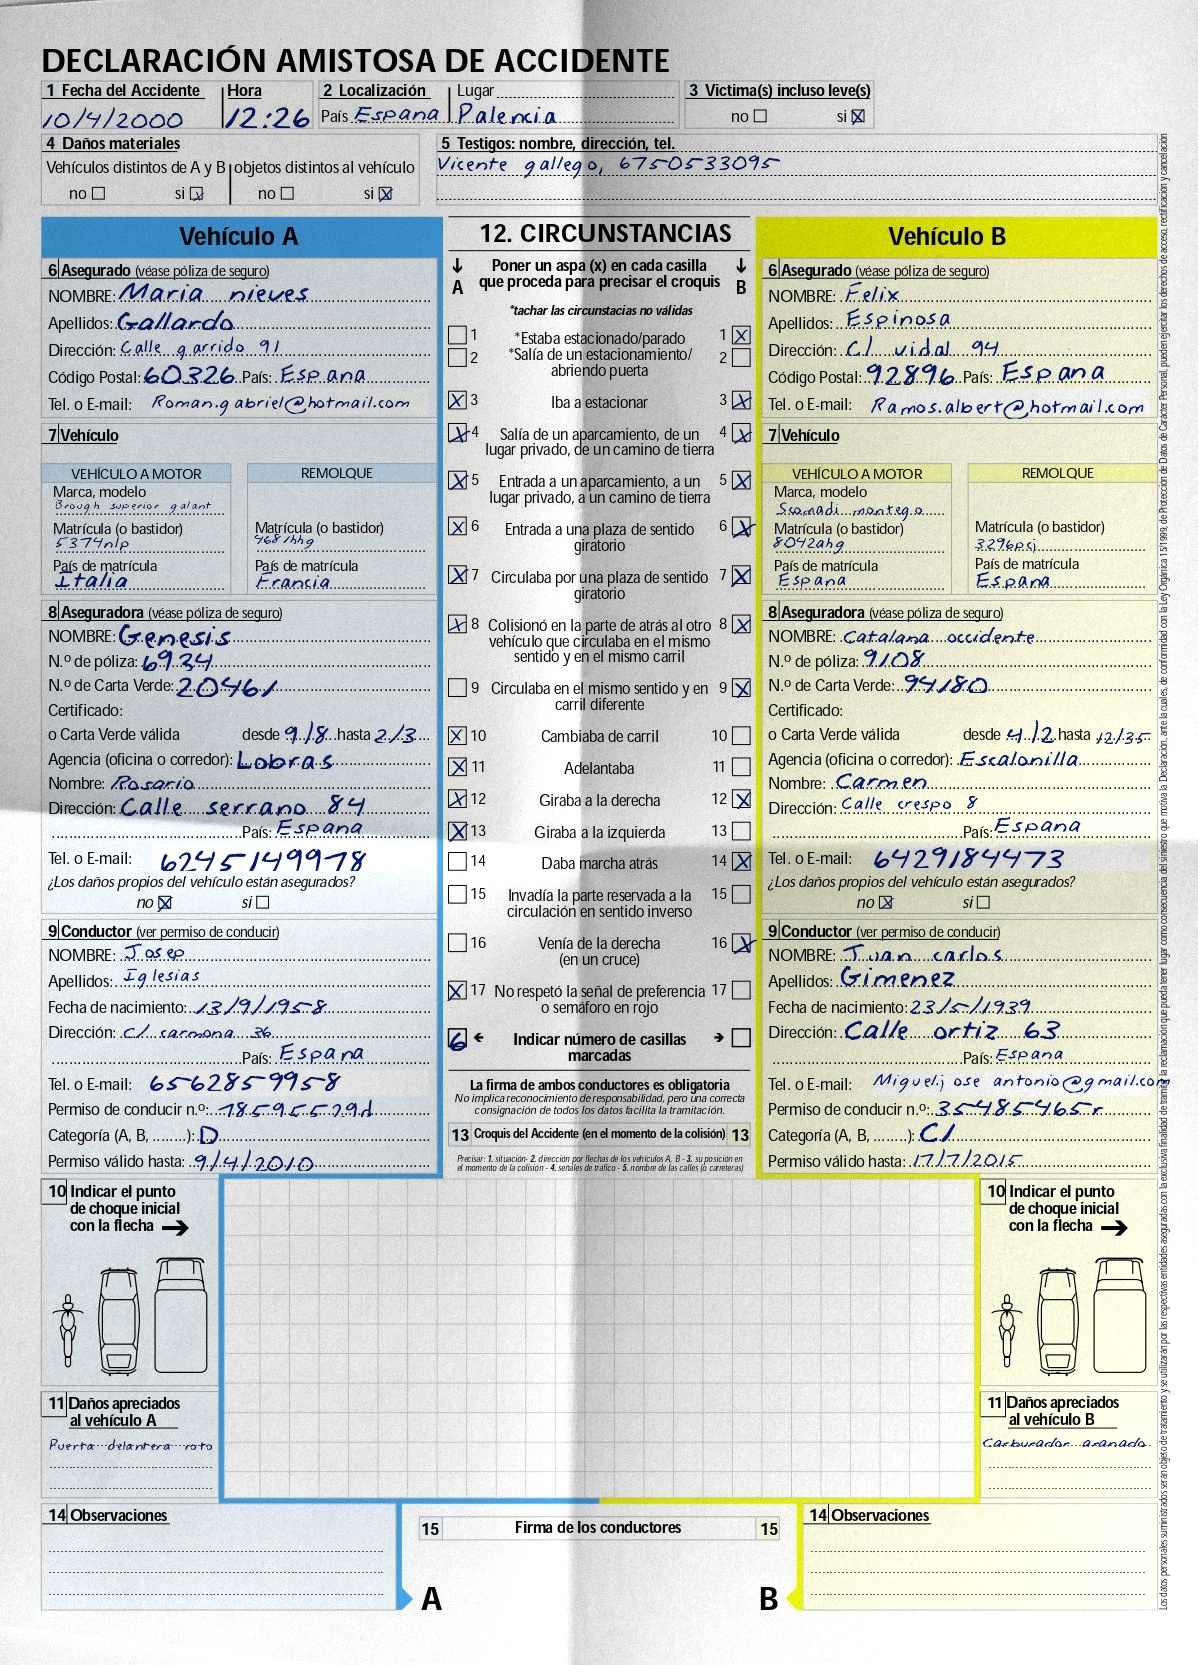 DECLARACIÓN AMISTOSA DE ACCIDENTE
1 Fecha del Accidente Hora 2 Localización Lugar 3 Victima(s) incluso leve(s)
10/4/2000 12:26 País Espana Palencia no si
4 Daños materiales 5 Testigos: nombre, dirección, tel.
Vehículos distintos de A y B objetos distintos al vehículo Vicente gallego, 6750533095
no si no si
Vehículo A 12. CIRCUNSTANCIAS Vehículo B
6 Asegurado (véase póliza de seguro)
NOMBRE: Maria nieves
Apellidos: Gallardo
Dirección: Calle garrido 91
Código Postal: 60326 País: Espana
Tel. o E-mail: Roman.gabriel@hotmail.com
7 Vehículo
VEHÍCULO A MOTOR REMOLQUE
Marca, modelo
Brough superior galant
Matrícula (o bastidor) Matrícula (o bastidor)
5374nlp 4681hhg
País de matrícula País de matrícula
Italia Francia
8 Aseguradora (véase póliza de seguro)
NOMBRE: Genesis
N.º de póliza: 6934
N.º de Carta Verde: 20461
Certificado:
o Carta Verde válida desde 9/8 hasta 2/3
Agencia (oficina o corredor): Lobras
Nombre: Rosario
Dirección: Calle serrano 84
País: Espana
Tel. o E-mail: 6245149978
¿Los daños propios del vehículo están asegurados?
no si
9 Conductor (ver permiso de conducir)
NOMBRE: Josep
Apellidos: Iglesias
Fecha de nacimiento: 13/9/1958
Dirección: C/ carmona 36
País: Espana
Tel. o E-mail: 6562859958
Permiso de conducir n.º: 78595529d
Categoría (A, B, ........): D
Permiso válido hasta: 9/4/2010
A Poner un aspa (x) en cada casilla B
que proceda para precisar el croquis
*tachar las circunstacias no válidas
1 *Estaba estacionado/parado 1
2 *Salía de un estacionamiento/ 2
abriendo puerta
3 Iba a estacionar 3
4 Salía de un aparcamiento, de un 4
lugar privado, de un camino de tierra
5 Entrada a un aparcamiento, a un 5
lugar privado, a un camino de tierra
6 Entrada a una plaza de sentido 6
giratorio
7 Circulaba por una plaza de sentido 7
giratorio
8 Colisionó en la parte de atrás al otro 8
vehículo que circulaba en el mismo
sentido y en el mismo carril
9 Circulaba en el mismo sentido y en 9
carril diferente
10 Cambiaba de carril 10
11 Adelantaba 11
12 Giraba a la derecha 12
13 Giraba a la izquierda 13
14 Daba marcha atrás 14
15 Invadía la parte reservada a la 15
circulación en sentido inverso
16 Venía de la derecha 16
(en un cruce)
17 No respetó la señal de preferencia 17
o semáforo en rojo
6 Indicar número de casillas
marcadas
La firma de ambos conductores es obligatoria
No implica reconocimiento de responsabilidad, pero una correcta
consignación de todos los datos facilita la tramitación.
13 Croquis del Accidente (en el momento de la colisión) 13
Precisar: 1. situación- 2. dirección por flechas de los vehículos A, B - 3. su posición en
el momento de la colisión - 4. señales de tráfico - 5. nombre de las calles (o carreteras)
6 Asegurado (véase póliza de seguro)
NOMBRE: Felix
Apellidos: Espinosa
Dirección: C/ vidal 94
Código Postal: 92896 País: Espana
Tel. o E-mail: Ramos.albert@hotmail.com
7 Vehículo
VEHÍCULO A MOTOR REMOLQUE
Marca, modelo
Scomadi montego
Matrícula (o bastidor) Matrícula (o bastidor)
8042ahg 3296pcj
País de matrícula País de matrícula
Espana Espana
8 Aseguradora (véase póliza de seguro)
NOMBRE: Catalana occidente
N.º de póliza: 9108
N.º de Carta Verde: 94180
Certificado:
o Carta Verde válida desde 4/2 hasta 12/35
Agencia (oficina o corredor): Escalonilla
Nombre: Carmen
Dirección: Calle crespo 8
País: Espana
Tel. o E-mail: 6429184473
¿Los daños propios del vehículo están asegurados?
no si
9 Conductor (ver permiso de conducir)
NOMBRE: Juan carlos
Apellidos: Gimenez
Fecha de nacimiento: 23/5/1939
Dirección: Calle ortiz 63
País: Espana
Tel. o E-mail: Miguel.jose antonio@gmail.com
Permiso de conducir n.º: 35485465r
Categoría (A, B, ........): C1
Permiso válido hasta: 17/7/2015
10 Indicar el punto
de choque inicial
con la flecha
11 Daños apreciados
al vehículo A
Puerta delantera roto
10 Indicar el punto
de choque inicial
con la flecha
11 Daños apreciados
al vehículo B
Carburador aranado
14 Observaciones 15 Firma de los conductores 15 14 Observaciones
A B
Los datos personales suministrados seran objeto de tratamiento y se utilizarán por las respectivas entidades aseguradas con la exclusiva finalidad de tramitar la reclamación que pueda tener lugar como consecuencia del siniestro que motiva la Declaración, ante la cuales, de conformidad con la Ley Orgánica 15/1999, de Protección de Datos de Carácter Personal, pueden ejercitar los derechos de acceso, rectificación y cancelación